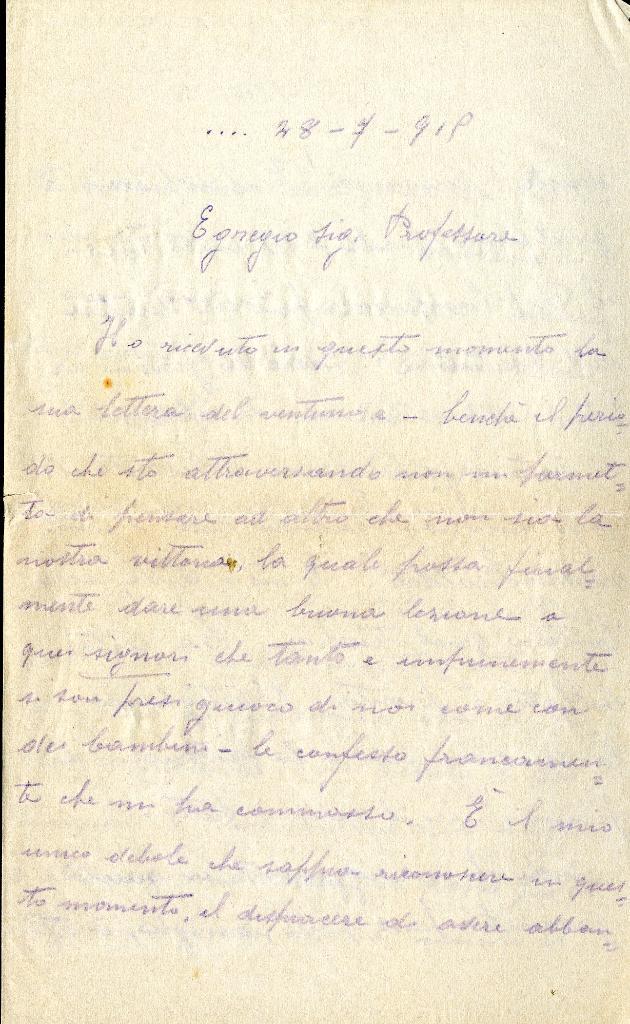 .... 28-7-915
Egregio Sig. Professore
Ho ricevuto in questo momento la
sua lettera del ventuno e - benchè il perio=
do che sto attraversando non mi permet=
ta di pensare ad altro che non sia la
nostra vittoria, la quale possa final=
mente dare una buona lezione a
quei signori che tanto e impunemente
si son presi giuoco di noi come con
dei bambini - le confesso francamen=
te che mi ha commosso. È il mio
unico debole che sappia riconoscere in ques=
to momento, il dispiacere di avere abban=